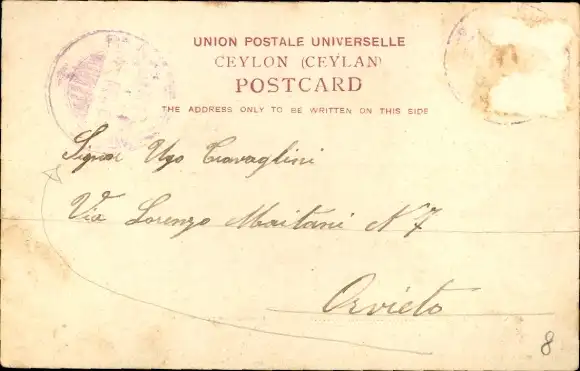 UNION POSTALE UNIVERSELLE
CEYLON (CEYLAN)
POSTCARD
THE ADDRESS ONLY TO BE WRITTEN ON THIS SIDE
Signor Ugo Travaglini
Via Lorenzo Maitani N 7
Orvieto
8